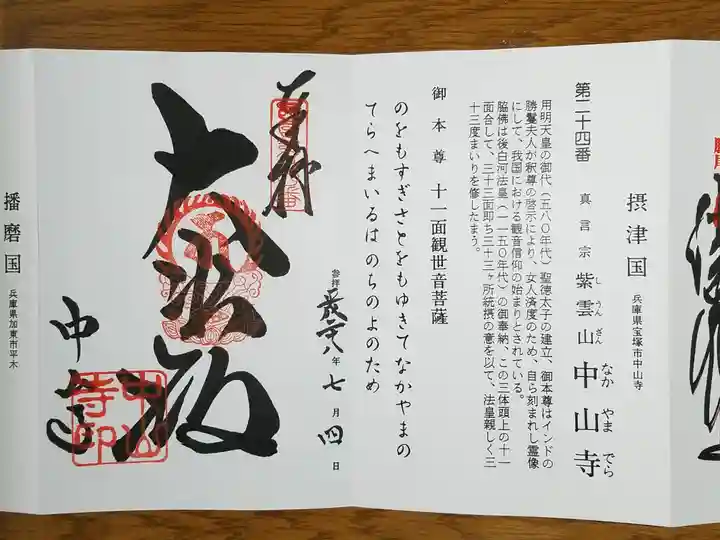 摂津国 兵庫県宝塚市中山寺
第二十四番 真言宗 紫雲山 中山寺
しうんざん なかやまでら
用明天皇の御代（五八〇年代）聖徳太子の建立、御本尊はインドの
勝鬘夫人が釈尊の啓示により、女人済度のため、自ら刻まれし霊像
にして、我国における観音信仰の始まりとされている。
脇佛は後白河法皇（一一五〇年代）の御奉納、この三体頭上の十一
面合して、三十三面即ち三十三ヶ所統摂の意を以て、法皇親しく三
十三度まいりを修したまう。
御本尊 十一面観世音菩薩
のをもすぎさとをもゆきてなかやまの
てらへまいるはのちのよのため
参拝 年七月四日
奉拝
大悲殿
中山寺
中山寺印
播磨国 兵庫県加東市平木